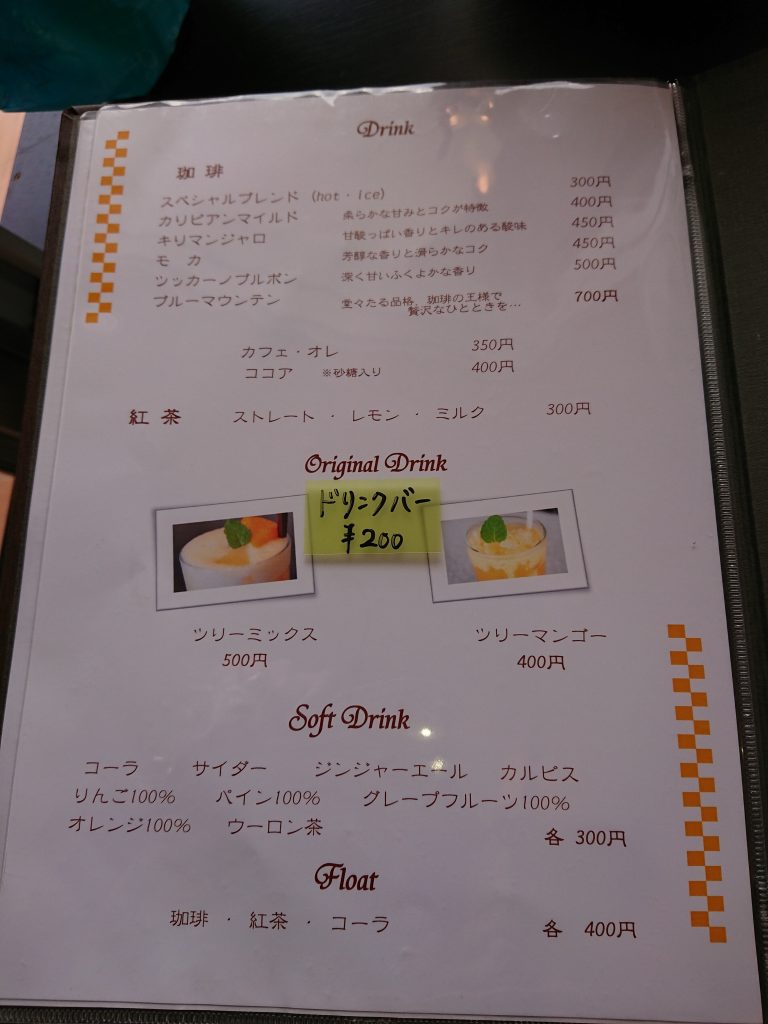 Drink
珈琲
スペシャルブレンド (hot・ice) 300円
カリビアンマイルド 柔らかな甘みとコクが特徴 400円
キリマンジャロ 甘酸っぱい香りとキレのある酸味 450円
モカ 芳醇な香りと滑らかなコク 450円
ツッカーノブルボン 深く甘いふくよかな香り 500円
ブルーマウンテン 堂々たる品格、珈琲の王様で 700円
贅沢なひとときを…
カフェ・オレ 350円
ココア ※砂糖入り 400円
紅茶 ストレート ・ レモン ・ ミルク 300円
Original Drink
ドリンクバー
¥200
ツリーミックス ツリーマンゴー
500円 400円
Soft Drink
コーラ サイダー ジンジャーエール カルピス
りんご100% パイン100% グレープフルーツ100%
オレンジ100% ウーロン茶 各 300円
Float
珈琲 ・ 紅茶 ・ コーラ 各 400円